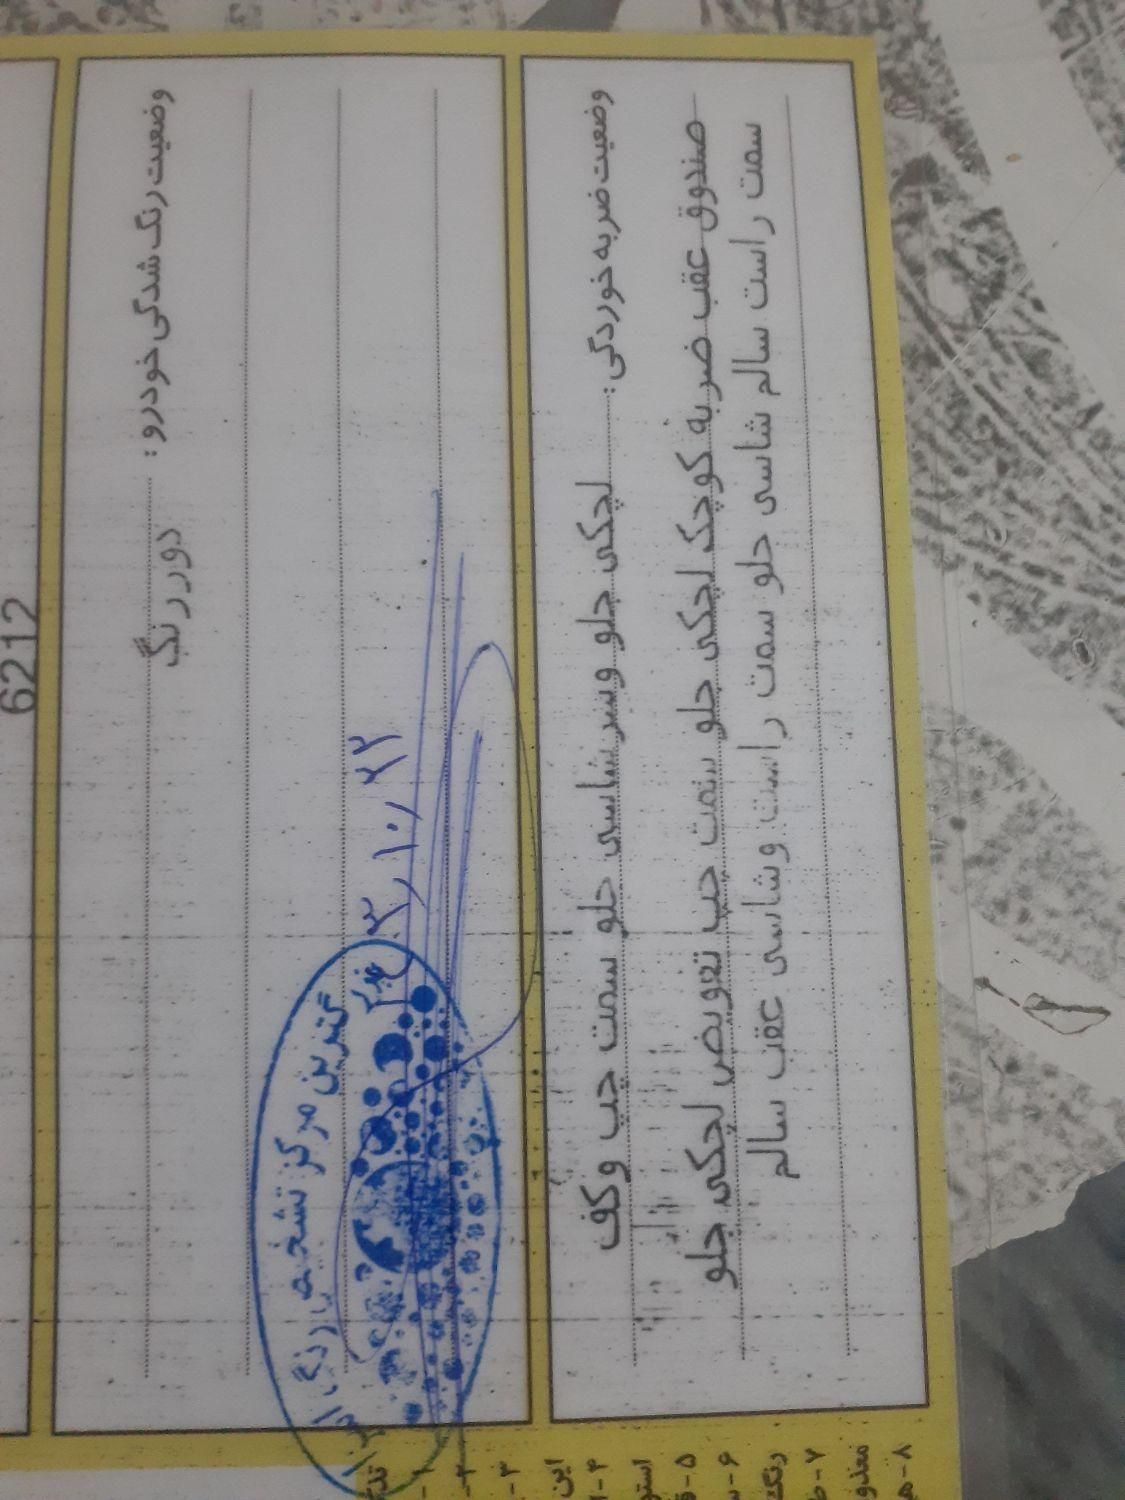 6212
وضعیت رنگ شدگی خودرو :
دور رنگ
۳ر۱۰ر۲۳
گترین مرکز تشخیص رنگ
وضعیت ضربه خوردگی : لچکی جلو وسر شاسی جلو سمت چپ وکف
صندوق عقب ضربه کوچک لچکی جلو سمت چپ تعویض لچکی جلو
سمت راست سالم شاسی جلو سمت راست وشاسی عقب سالم
۳-
۴-
این
۵-
۶-
رنگ
۷-
۸-